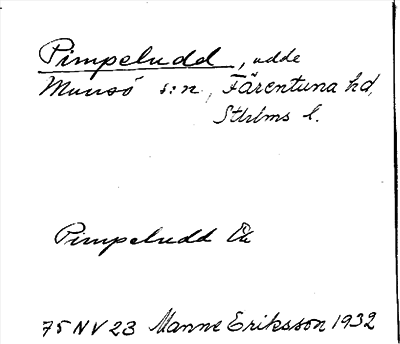 Pimpeludd, udde
Munsö s:n, Färentuna hd,
Sthlms l.
Pimpeludd Ek
75 NV 23 Manne Eriksson 1932